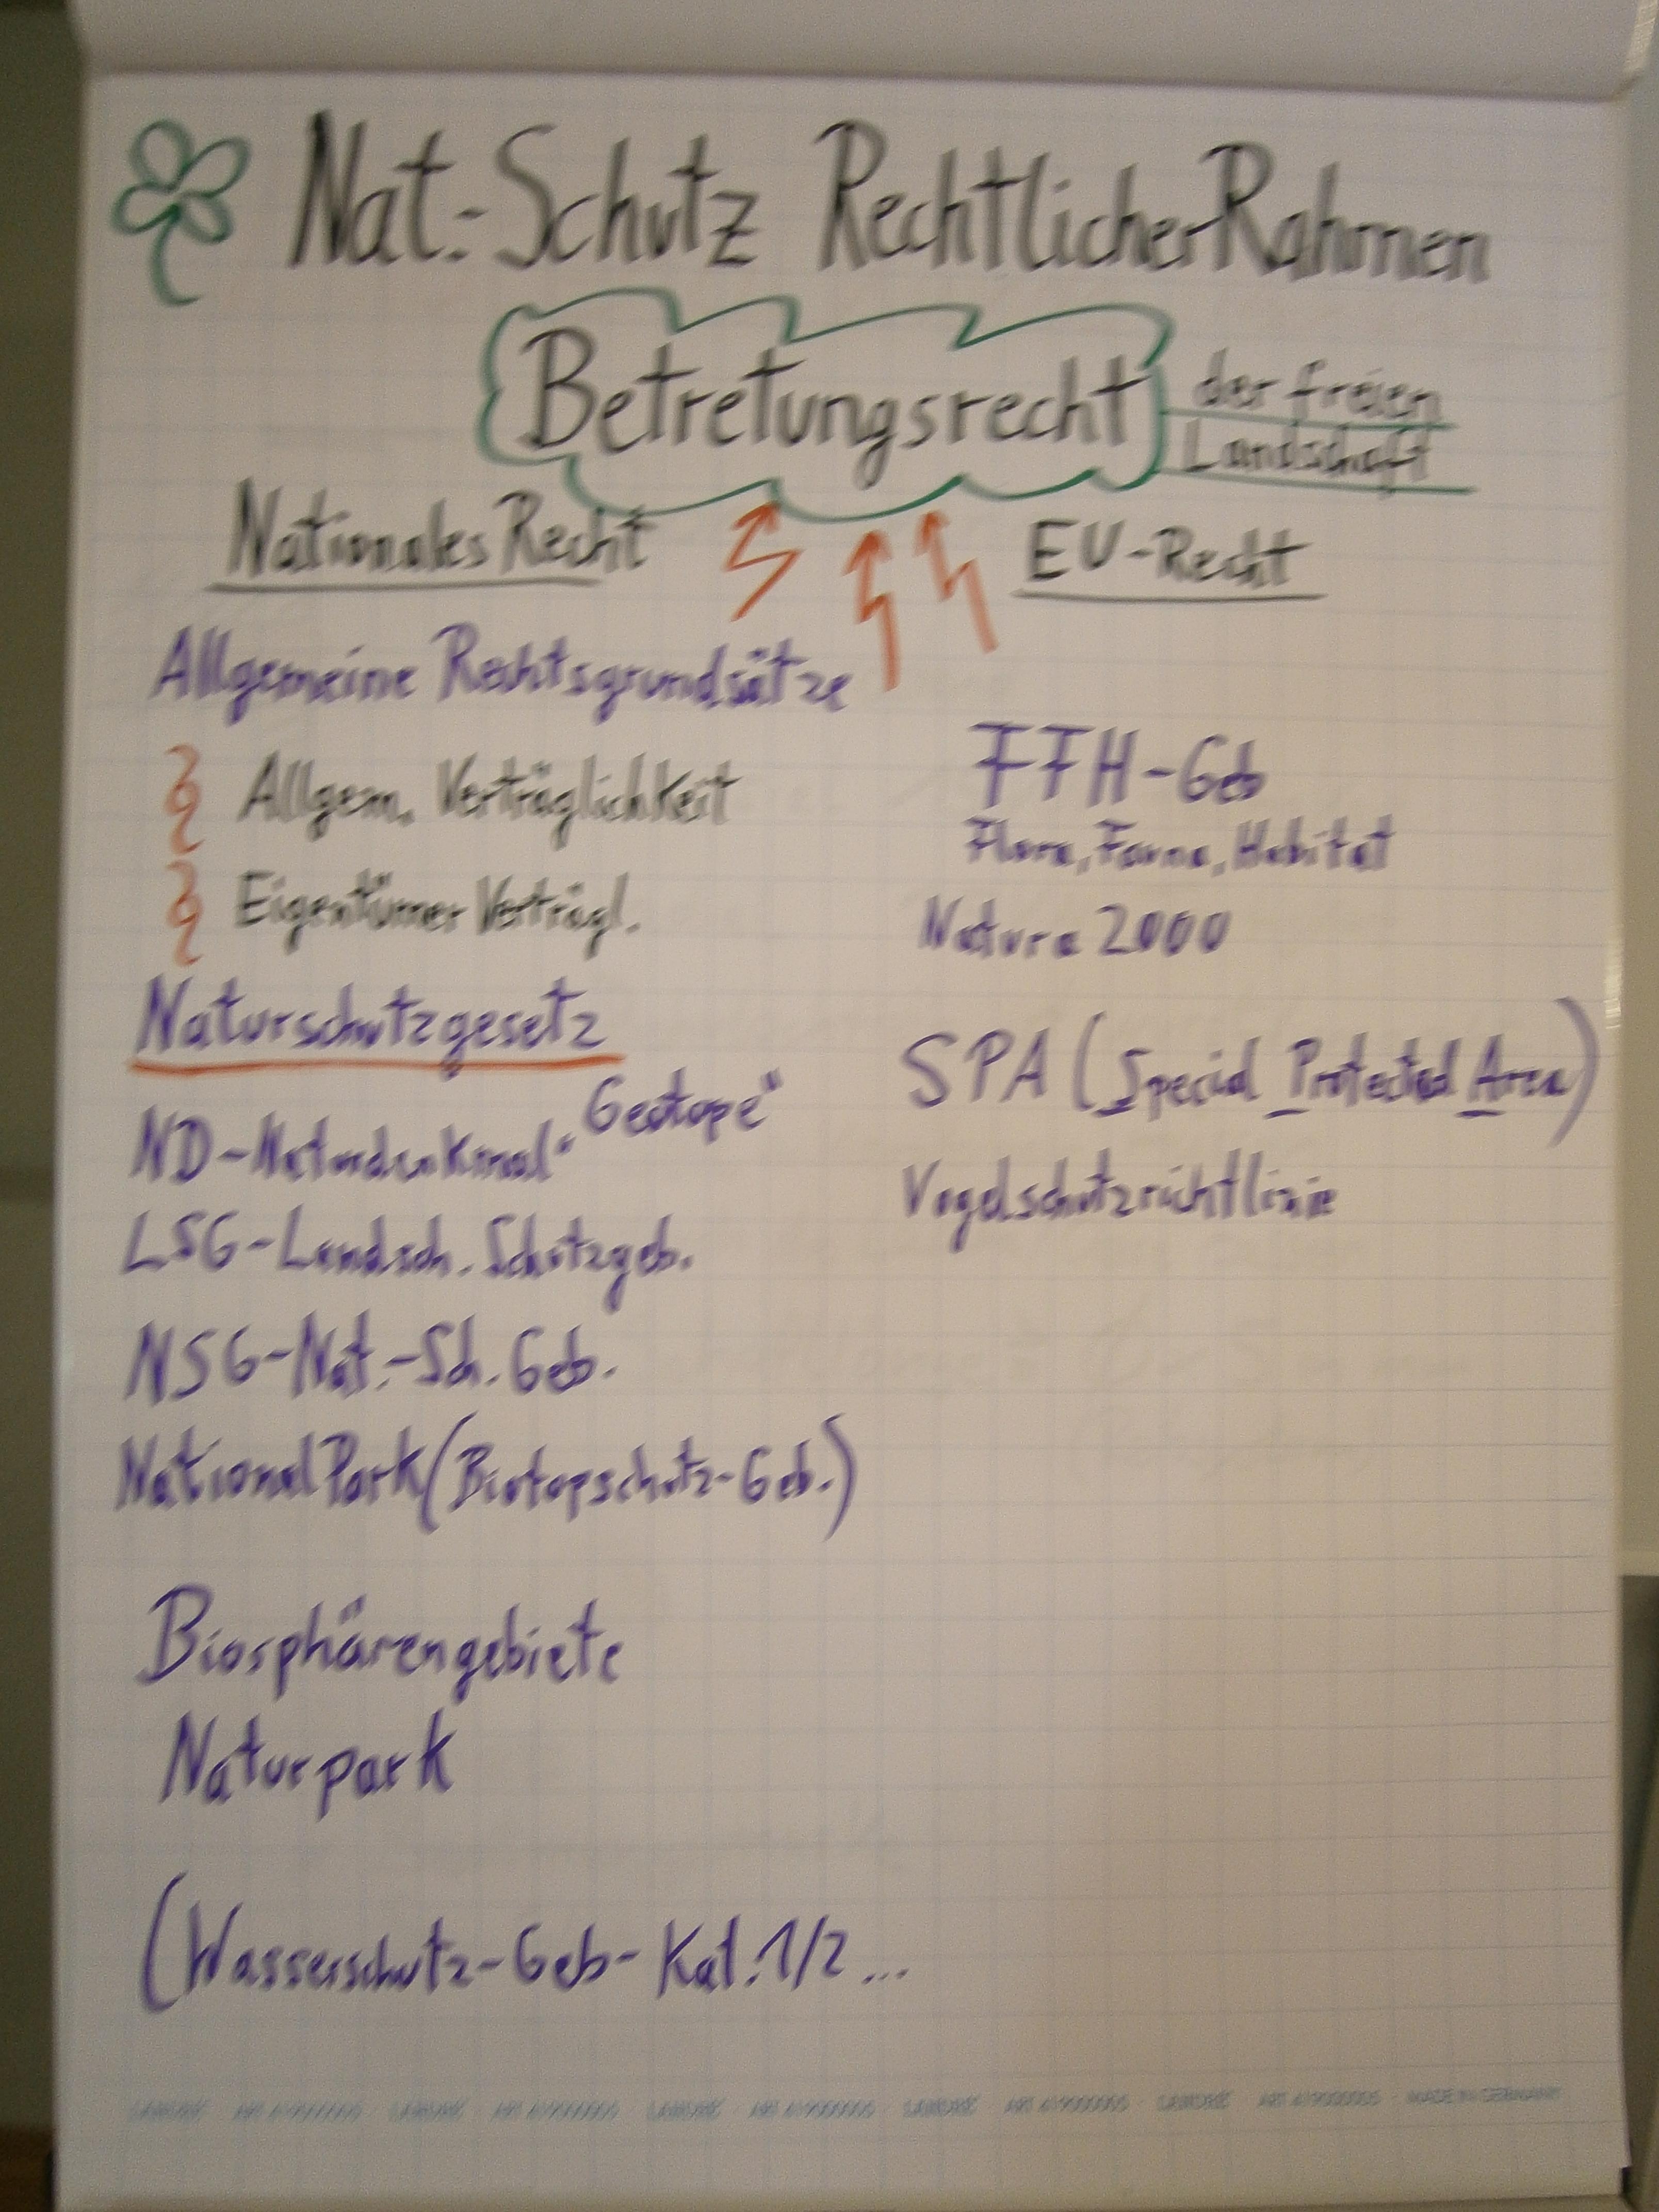 Nat.-Schutz Rechtlicher Rahmen
Betretungsrecht
der freien
Landschaft
Nationales Recht
Allgemeine Rechtsgrundsätze
§ Allgem. Verträglichkeit
§ Eigentümer Verträgl.
Naturschutzgesetz
ND-Naturdenkmal "Geotope"
LSG-Landsch. Schutzgeb.
NSG-Nat.-Sch. Geb.
NationalPark (Biotopschutz-Geb.)
Biosphärengebiete
Naturpark
(Wasserschutz-Geb- Kat. 1/2 ...
EU-Recht
FFH-Geb
Flora, Fauna, Habitat
Natura 2000
SPA (Special Protected Area)
Vogelschutzrichtlinie
LANDRÉ LANDRÉ LANDRÉ LANDRÉ LANDRÉ MADE IN GERMANY